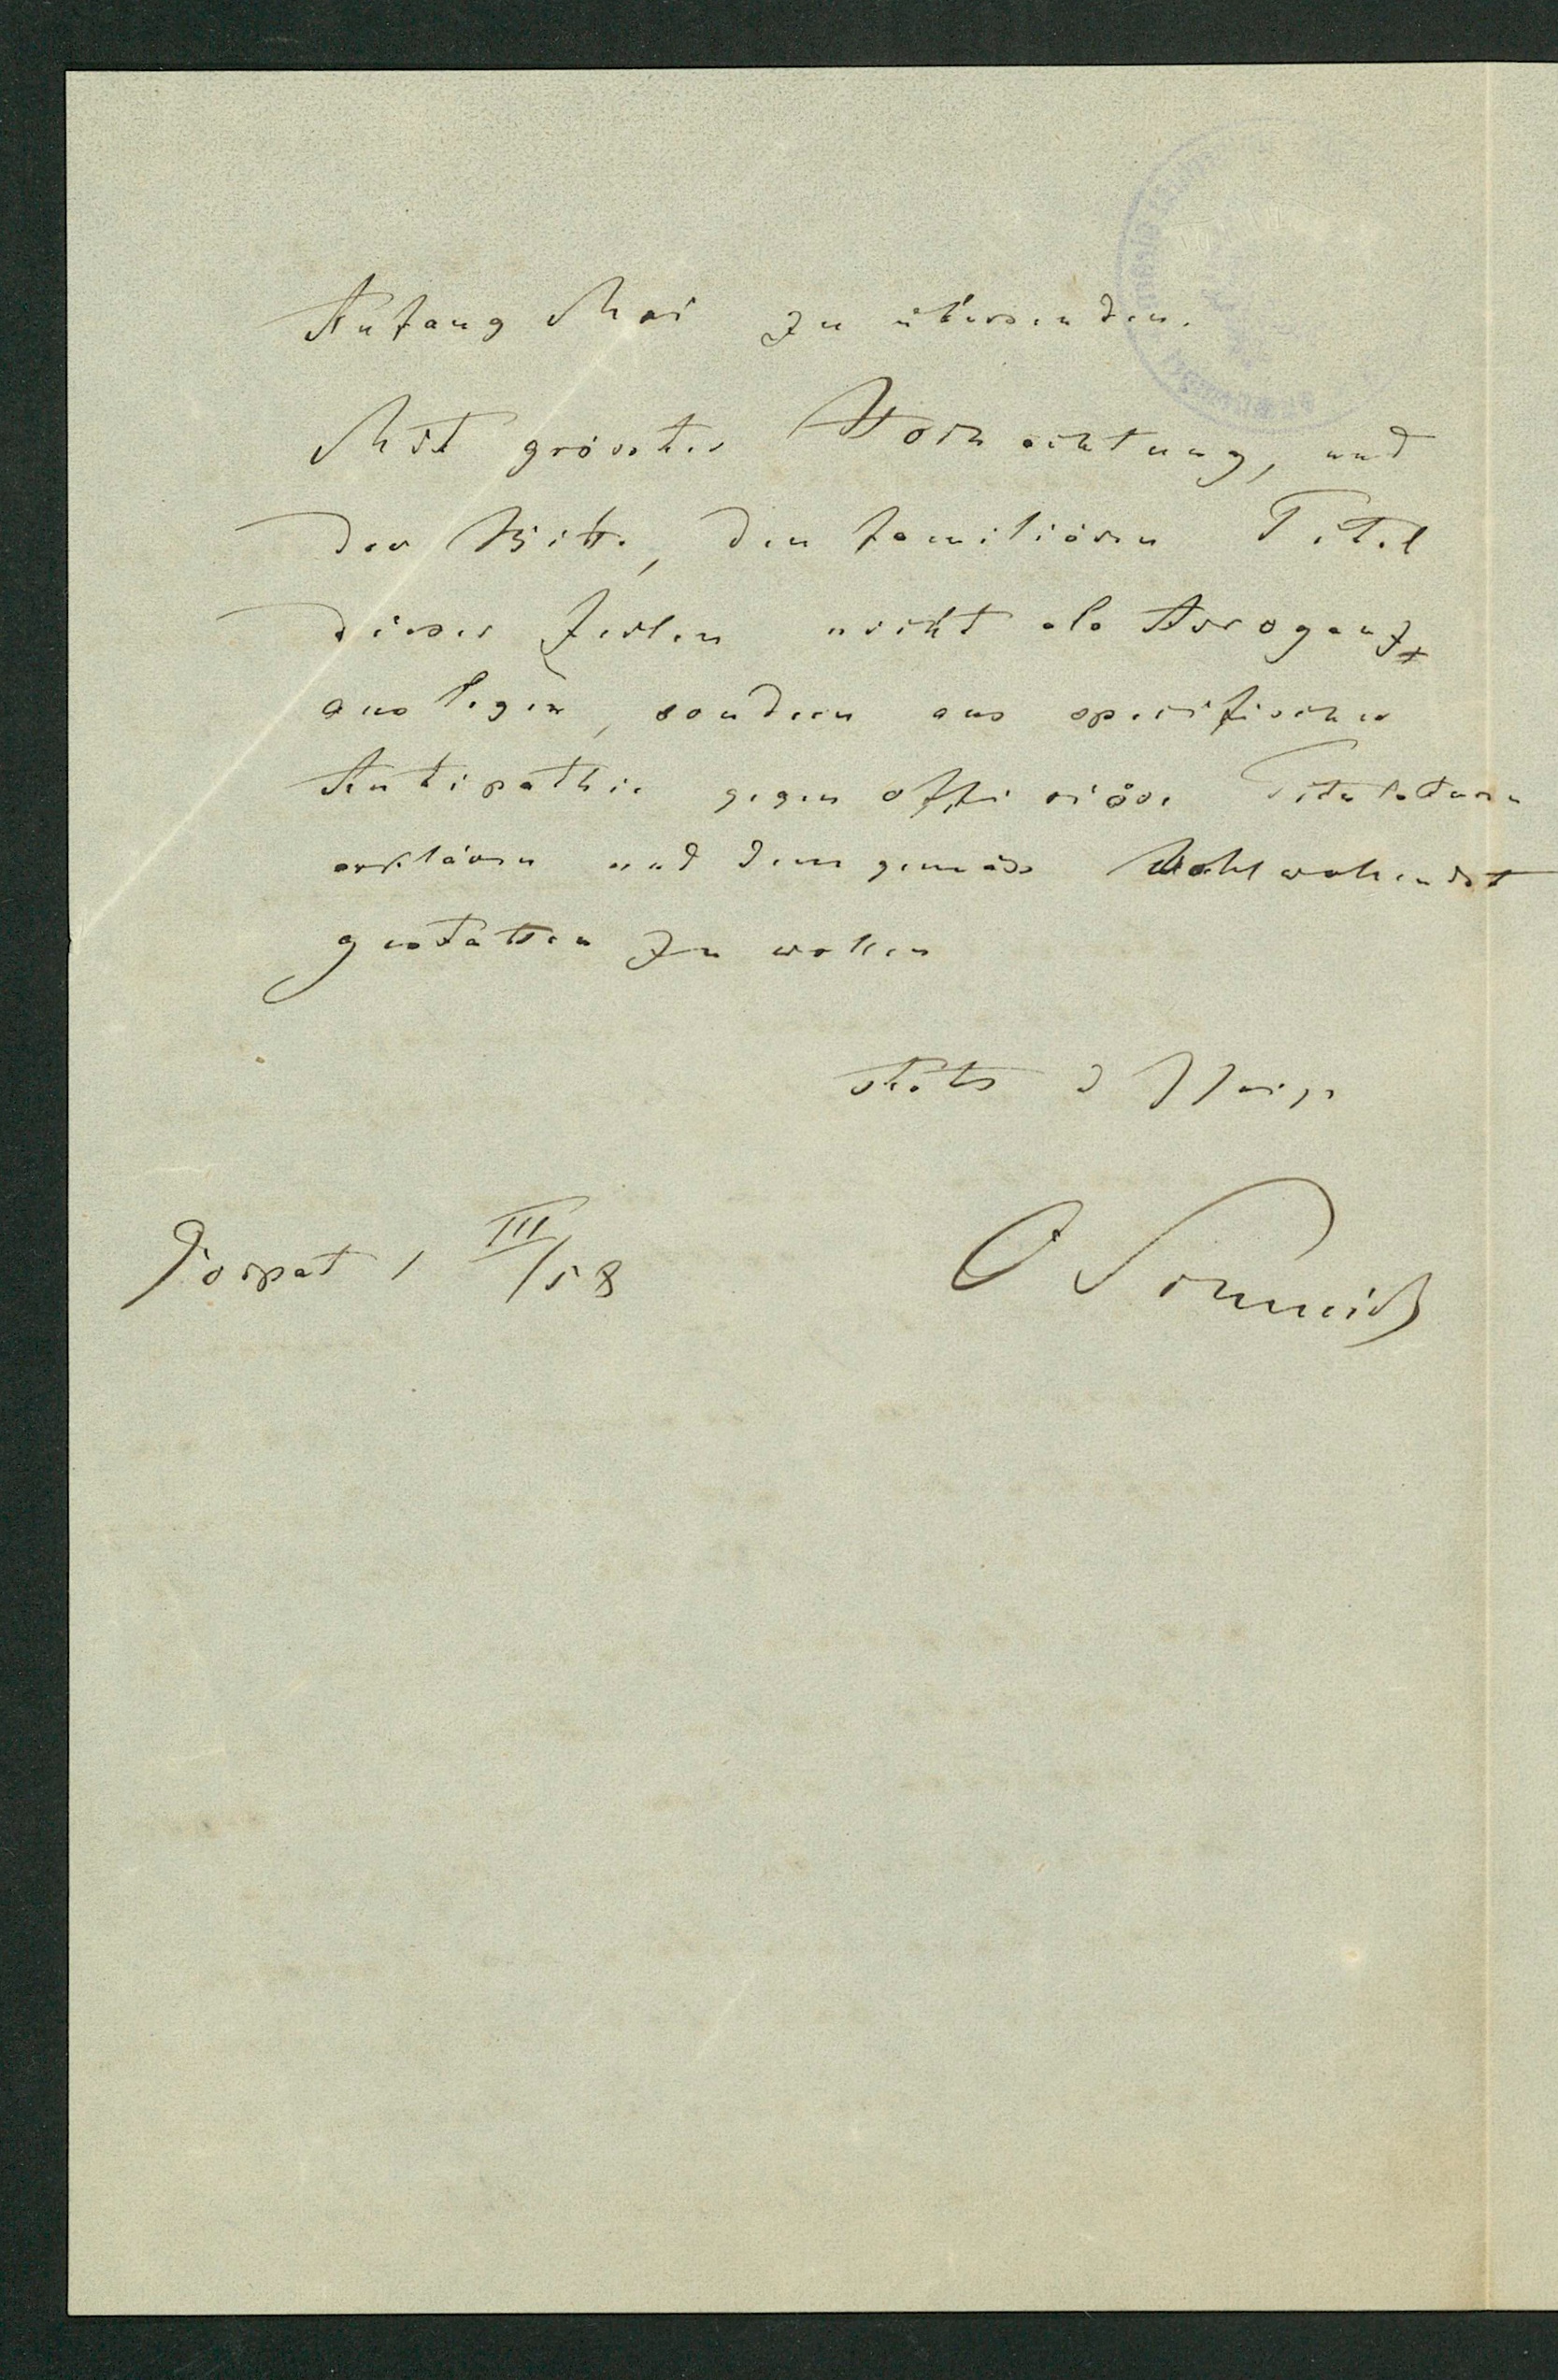 Anfang Mai zu übersenden.
Mit grösster Hochachtung, und
der Bitte, den familiären Titel
dieser Zeilen nicht als Arroganz
auslegen, sondern aus specifischer
Antipathie gegen officiöse Titulaturen
erklären und demgemäss wohlwollendst
gestatten zu wollen
stets
Dorpat 1 III/58
C Schmidt